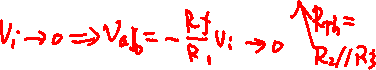 Vi → 0 ⇒ Vab = - Rf/R1 Vi → 0
Rth =
R2//R3